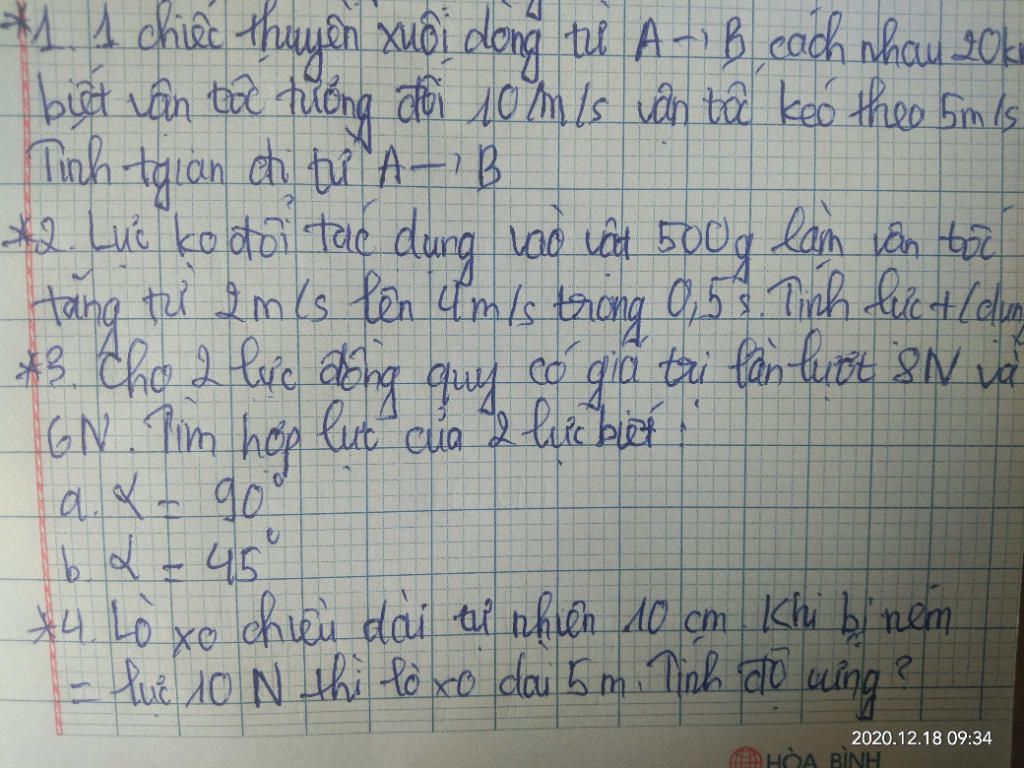 *1. 1 chiếc thuyền xuôi dòng từ A → B cách nhau 20km
biết vận tốc tương đối 10m/s vận tốc kéo theo 5m/s
Tính tgian đi từ A → B
*2. Lực ko đổi tác dụng vào vật 500g làm vận tốc
tăng từ 2m/s lên 4m/s trong 0,5s. Tính lực t/dụng
*3. Cho 2 lực đồng quy có giá trị lần lượt 8N và
6N. Tìm hợp lực của 2 lực biết:
a. α = 90°
b. α = 45°
*4. Lò xo chiều dài tự nhiên 10 cm. Khi bị ném
= lực 10 N thì lò xo dài 5m. Tính độ cứng?
2020.12.18 09:34
HÒA BÌNH